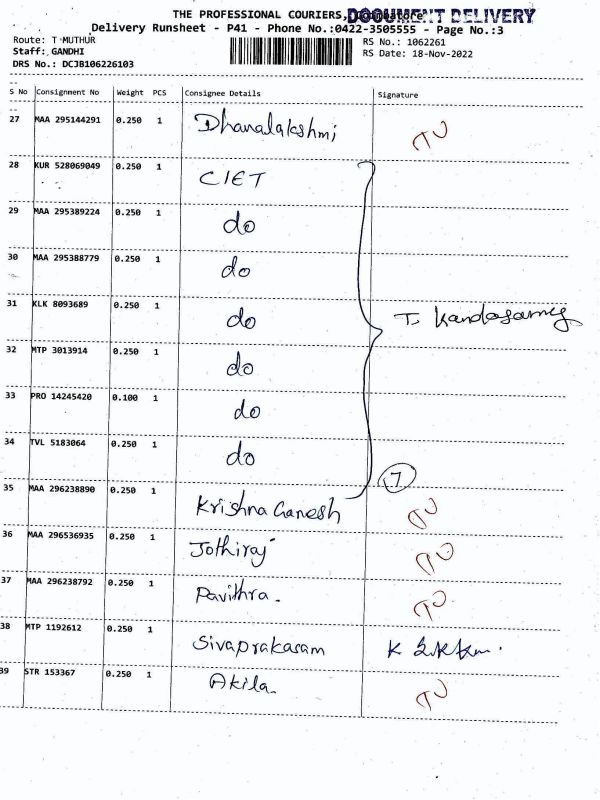 THE PROFESSIONAL COURIERS, Coimbatore
DOCUMENT DELIVERY
Delivery Runsheet - P41 - Phone No.:0422-3505555 - Page No.:3
Route: T MUTHUR
RS No.: 1062261
Staff: GANDHI
RS Date: 18-Nov-2022
DRS No.: DCJB106226103
S No Consignment No Weight PCS Consignee Details Signature
27 MAA 295144291 0.250 1 Dhanalakshmi
28 KUR 528069049 0.250 1 CIET
29 MAA 295389224 0.250 1 do
30 MAA 295388779 0.250 1 do
31 KLK 8093689 0.250 1 do T. Kandasamy
32 MTP 3013914 0.250 1 do
33 PRO 14245420 0.100 1 do
34 TVL 5183064 0.250 1 do
7
35 MAA 296238890 0.250 1 Krishna Ganesh
36 MAA 296536935 0.250 1 Jothiraj
37 MAA 296238792 0.250 1 Pavithra.
38 MTP 1192612 0.250 1 Sivaprakasam K
39 STR 153367 0.250 1 Akila.